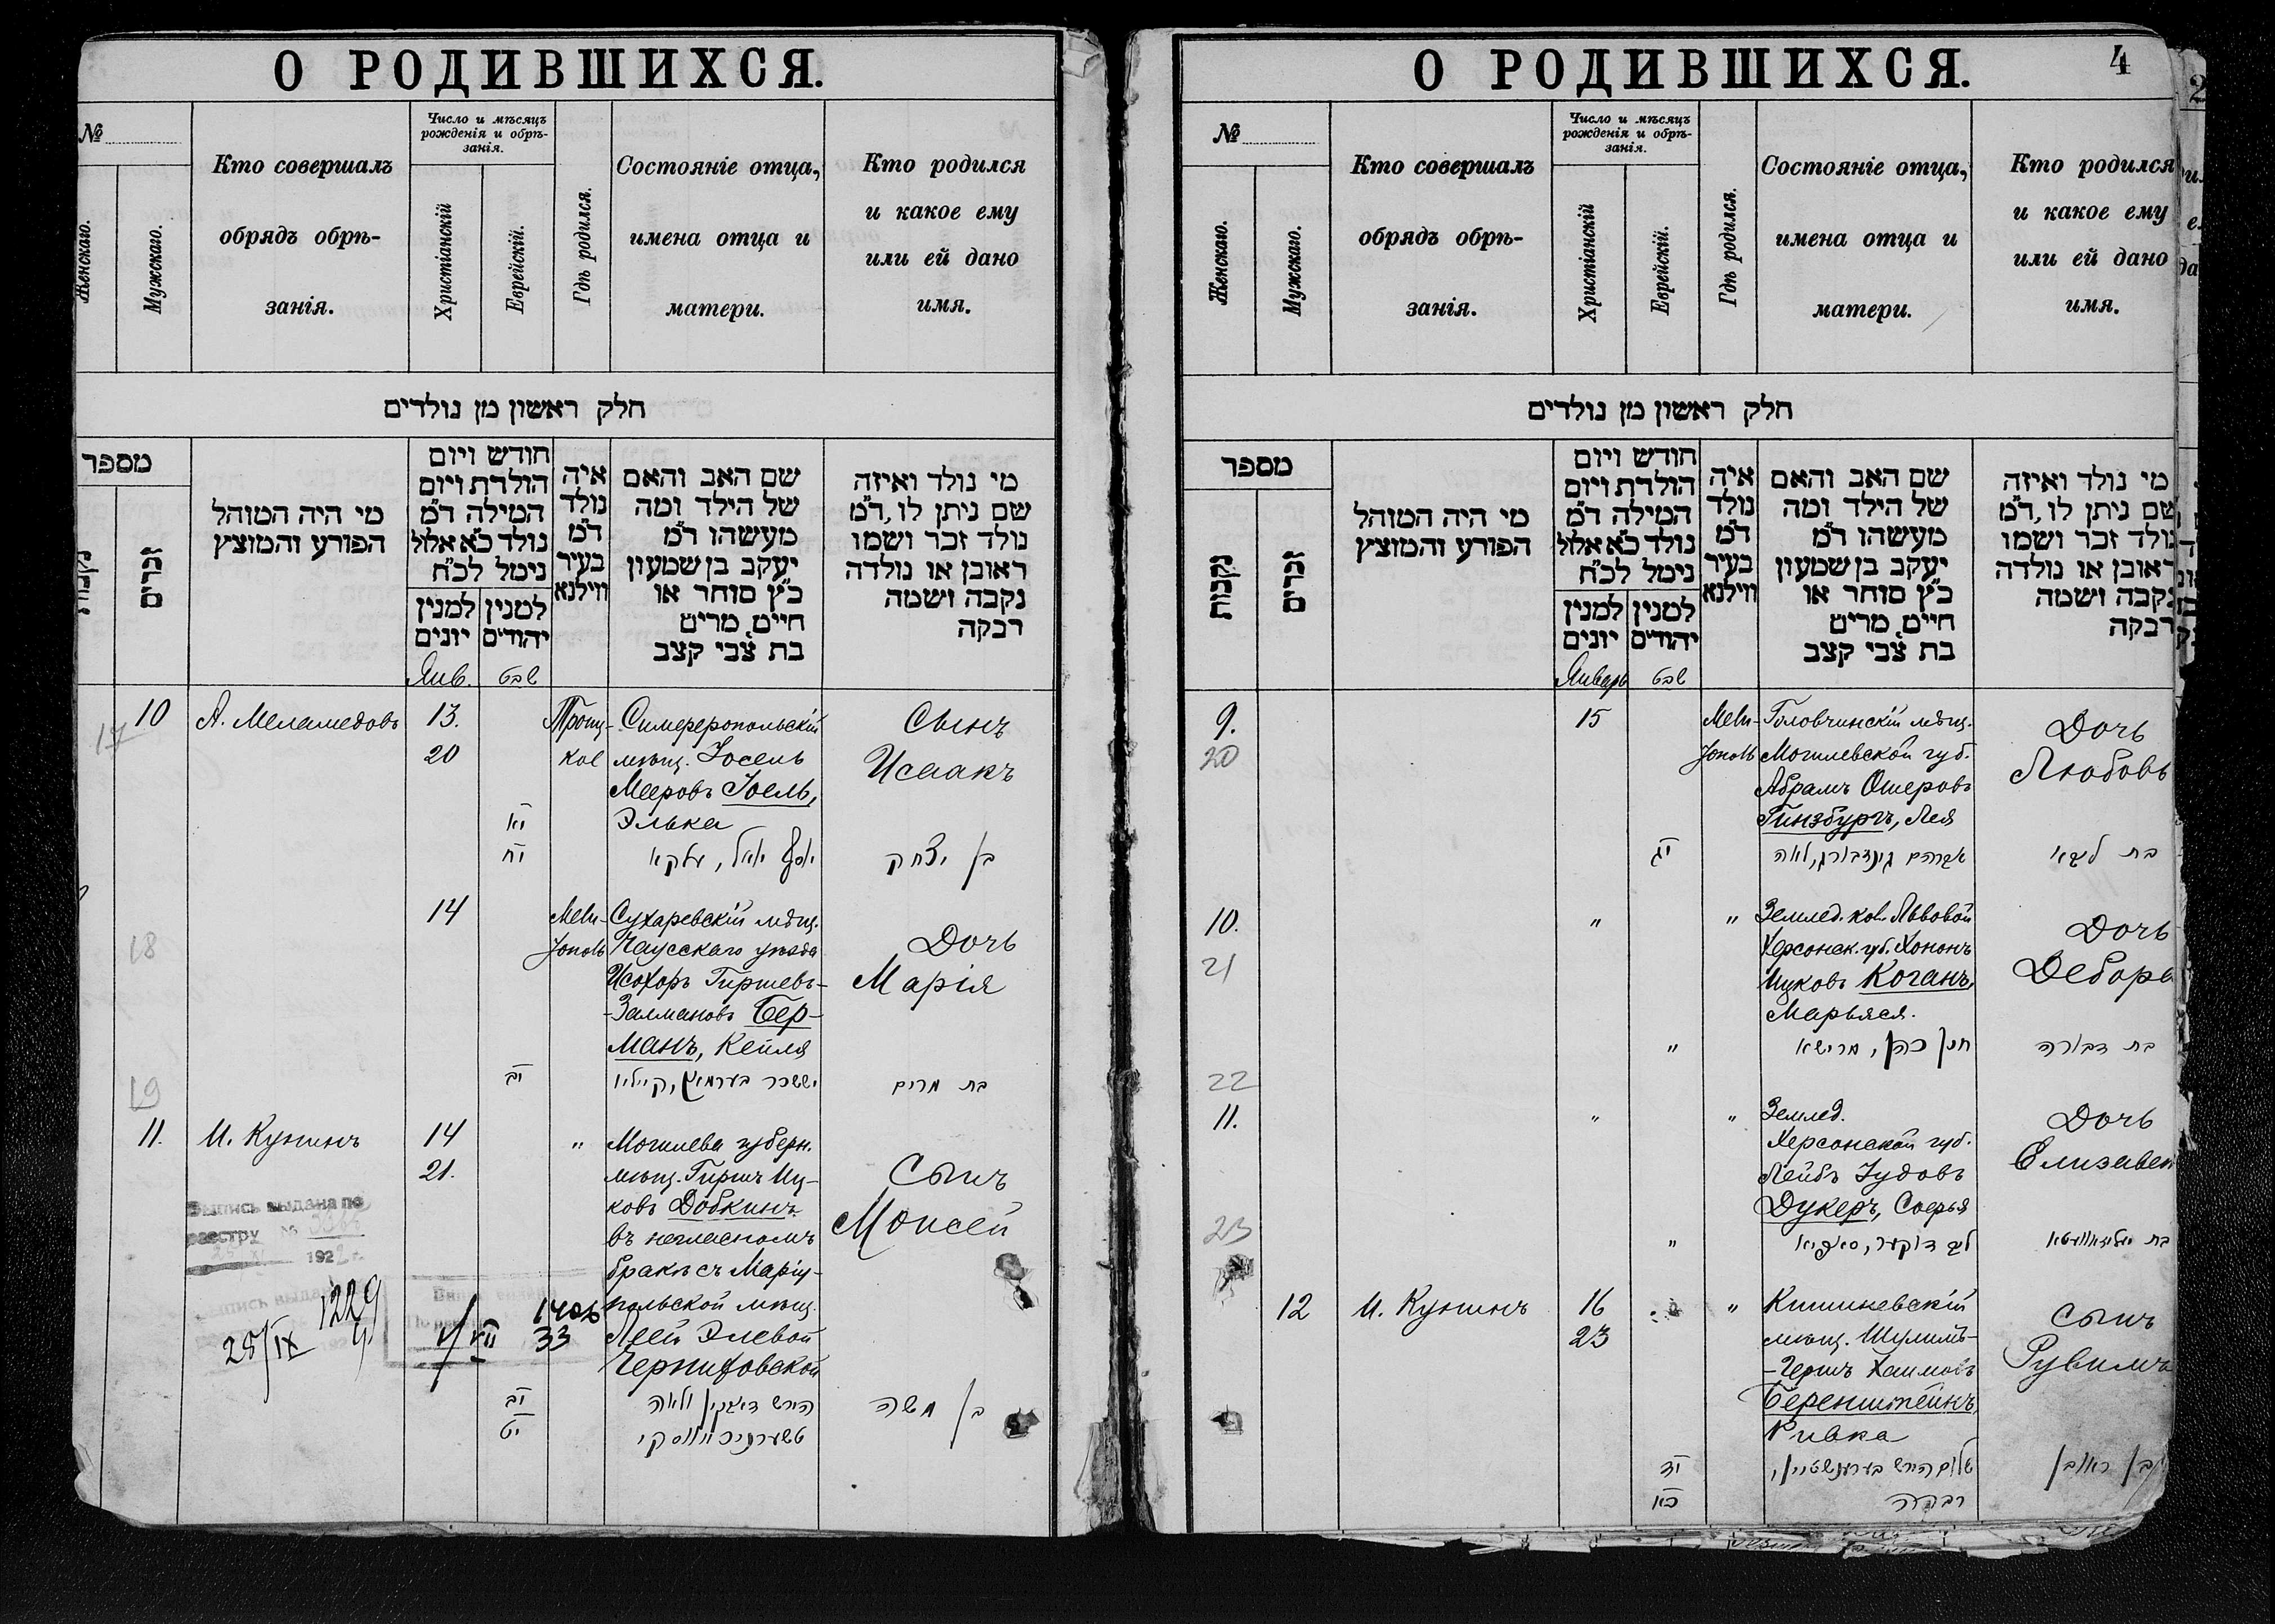 О РОДИВШИХСЯ.
№
Женскаго.
Мужскаго.
Кто совершалъ
обрядъ обрѣ-
занія.
Число и мѣсяцъ
рожденія и обрѣ-
занія.
Христіанскій
Еврейскій.
Гдѣ родился.
Состояніе отца,
имена отца и
матери.
Кто родился
и какое ему
или ей дано
имя.
חלק ראשון מן נולדים
מספר
זכרים
מי היה המוהל
הפורע והמוצץ
חודש ויום
הולדת ויום
המילה ד"מ
נולד כ"א אלול
נימל לכ"ח
למנין
יונים
למנין
יהודים
איה
נולד
ד"מ
בעיר
ווילנא
שם האב והאם
של הילד ומה
מעשהו ד"מ
יעקב בן שמעון
כ"ץ סוחר או
חייט, מרים
בת צבי קצב
מי נולד ואיזה
שם ניתן לו, ד"מ
נולד זכר ושמו
ראובן או נולדה
נקבה ושמה
רבקה
Янв. שבט
17
10 А. Меламедовъ 13. Троиц- Симферопольскій Сынъ
20 кое мѣщ. Іосель Исаакъ
Мееровъ Іоель,
יא Элька
יח יוסף יואל, עלקא בן יצחק
14 Мели- Сухаревскій мѣщ. Дочь
18 тополь Чаусскаго уѣзда Марія
Исохоръ Гиршевъ-
-Залмановъ Бер-
манъ, Кейля
יב יששכר בערמאן, קיילא בת מרים
19
11. И. Кунинъ 14 " Могилева губерн. Сынъ
21. мѣщ. Гиршъ Иц- Моисей
ковъ Добкинъ
въ негласномъ
бракѣ съ Маріу-
польской мѣщ.
Леей Элевой
Черниховской
Выпись выдана по
реестру №
192 г.
1229
28/IX
V/VII 33
יב הירש דאבקין ולאה בן משה
יט
О РОДИВШИХСЯ. 4
№
Женскаго.
Мужскаго.
Кто совершалъ
обрядъ обрѣ-
занія.
Число и мѣсяцъ
рожденія и обрѣ-
занія.
Христіанскій
Еврейскій.
Гдѣ родился.
Состояніе отца,
имена отца и
матери.
Кто родился
и какое ему
или ей дано
имя.
חלק ראשון מן נולדים
מספר
נקבות
זכרים
מי היה המוהל
הפורע והמוצץ
חודש ויום
הולדת ויום
המילה ד"מ
נולד כ"א אלול
נימל לכ"ח
למנין
יונים
למנין
יהודים
איה
נולד
ד"מ
בעיר
ווילנא
שם האב והאם
של הילד ומה
מעשהו ד"מ
יעקב בן שמעון
כ"ץ סוחר או
חייט, מרים
בת צבי קצב
מי נולד ואיזה
שם ניתן לו, ד"מ
נולד זכר ושמו
ראובן או נולדה
נקבה ושמה
רבקה
Январь שבט
9. 15 Мели- Головчинскій мѣщ. Дочь
20 тополь Могилевской губ. Любовь
Абрамъ Ошеровъ
Гинзбургъ, Лея
יג אברהם גינזבורג, לאה בת ליבא
10. " " Землед. кол. Львовой Дочь
21 Херсонск. губ. Хононъ Дебора
Ицковъ Коганъ,
Марьяся.
" חנן כהן, מרישא בת דבורה
22
11. " " Землед. Дочь
Херсонской губ. Елизавет
Лейбъ Іудовъ
Дукеръ, Софья
23
" ליב דוקער, סאפיא בת עליזאוועטא
12 И. Кунинъ 16 " Кишиневскій Сынъ
23 мѣщ. Шулимъ- Рувимъ
-Гершъ Хаимовъ
Беренштейнъ,
Ривка
יד שלום הירש בערענשטיין, בן ראובן
כא רבקה